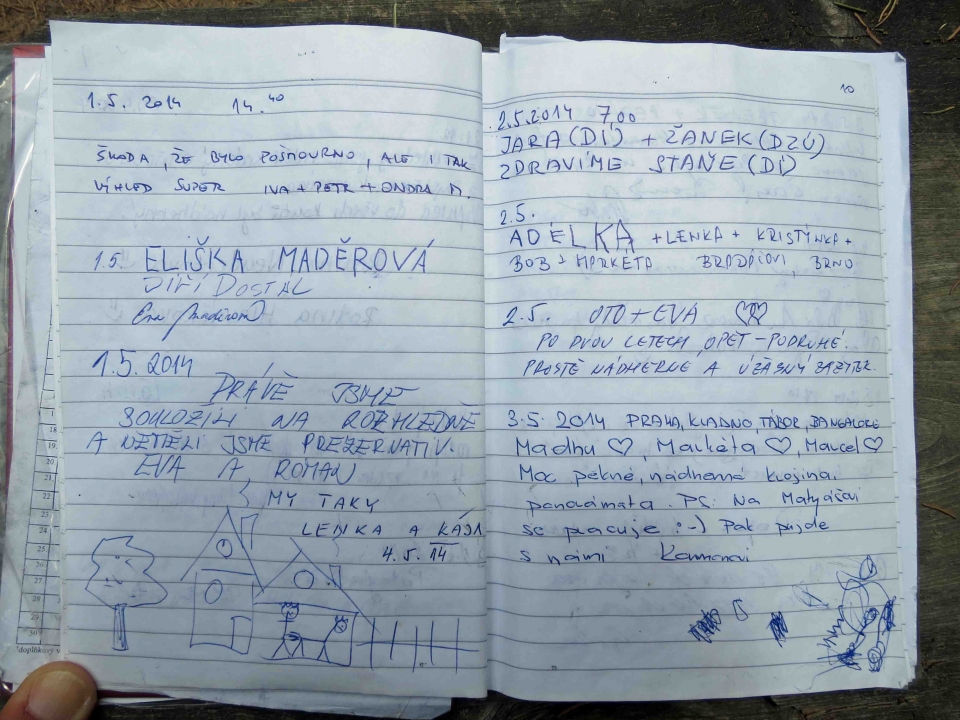 1.5. 2014 14.40
ŠKODA, ŽE BYLO POŠMOURNO, ALE I TAK
VÝHLED SUPER IVA + PETR + ONDRA M.
1.5. ELIŠKA MADĚROVÁ
JIŘÍ DOSTAL
Eva Maděrová
1.5. 2014
PRÁVĚ JSME
SOULOZILI NA ROZHLEDNĚ
A NEMĚLI JSME PREZERNATIV.
EVA A ROMAN
MY TAKY
LENKA A KÁJA
4.5. 14
10
2.5.2014 7,00
JARA (DÍ) + ŽANEK (DZÚ)
ZDRAVIME STAŇE (DÍ)
2.5.
ADÉLKA + LENKA + KRISTÝNKA +
BOB + MARKÉTA BRNO
2.5. OTO + EVA
PO DVOU LETECH OPĚT - PODRUHÉ.
PROSTĚ NÁDHERNÉ A ÚŽASNÝ ZÁŽITEK.
3.5. 2014 PRAHA, KLADNO, TÁBOR, BANGALORE
Madhu ♡, Markéta ♡, Marcel ♡
Moc pěkné, nádherná krajina,
panorámata. PS. Na Matyášovi
se pracuje :-) Pak přijde
s námi
doplňkový v